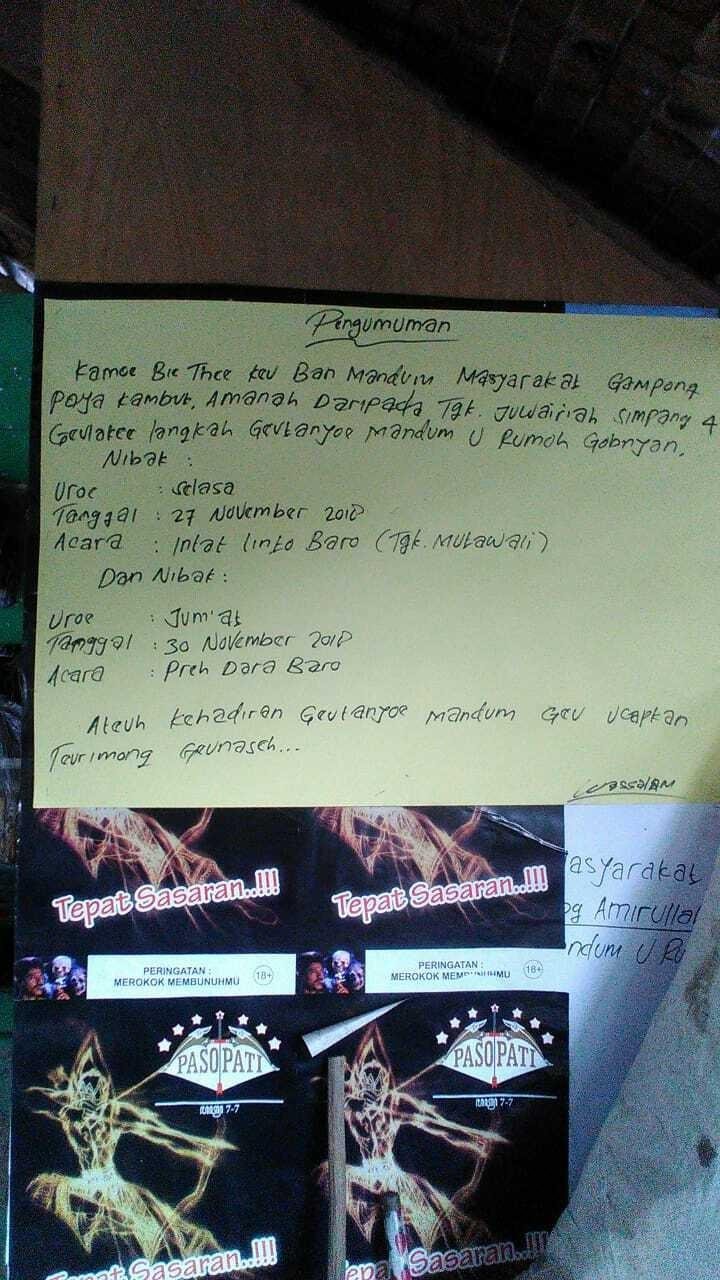 Pengumuman
Kamoe Bie Thee keu Ban Mandum Masyarakat Gampong
Paya Kambuk, Amanah Daripada Tgk. Juwairiah Simpang 4
Geulakee langkah Geutanyoe Mandum U Rumoh Gobnyan.
Nibak :
Uroe : Selasa
Tanggal : 27 November 2018
Acara : Intat linto Baro (Tgk. Mutawali)
Dan Nibak :
Uroe : Jum'at
Tanggal : 30 November 2018
Acara : Preh Dara Baro
Ateuh kehadiran Geutanyoe Mandum Geu ucapkan
Teurimong Geunaseh...
Wassalam
asyarakat
og Amirullah
ndum U Ru
Tepat Sasaran..!!!
Tepat Sasaran..!!!
PERINGATAN :
MEROKOK MEMBUNUHMU
18+
PERINGATAN :
MEROKOK MEMBUNUHMU
18+
PASOPATI
7-7
PASOPATI
7-7
Tepat Sasaran..!!!
Sasaran..!!!